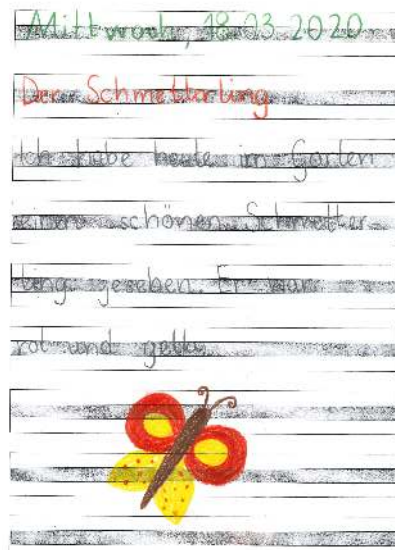 Mittwoch, 18.03.2020
Der Schmetterling
Ich habe heute im Garten
einen schönen Schmetter-
ling gesehen. Er war
rot und gelb.